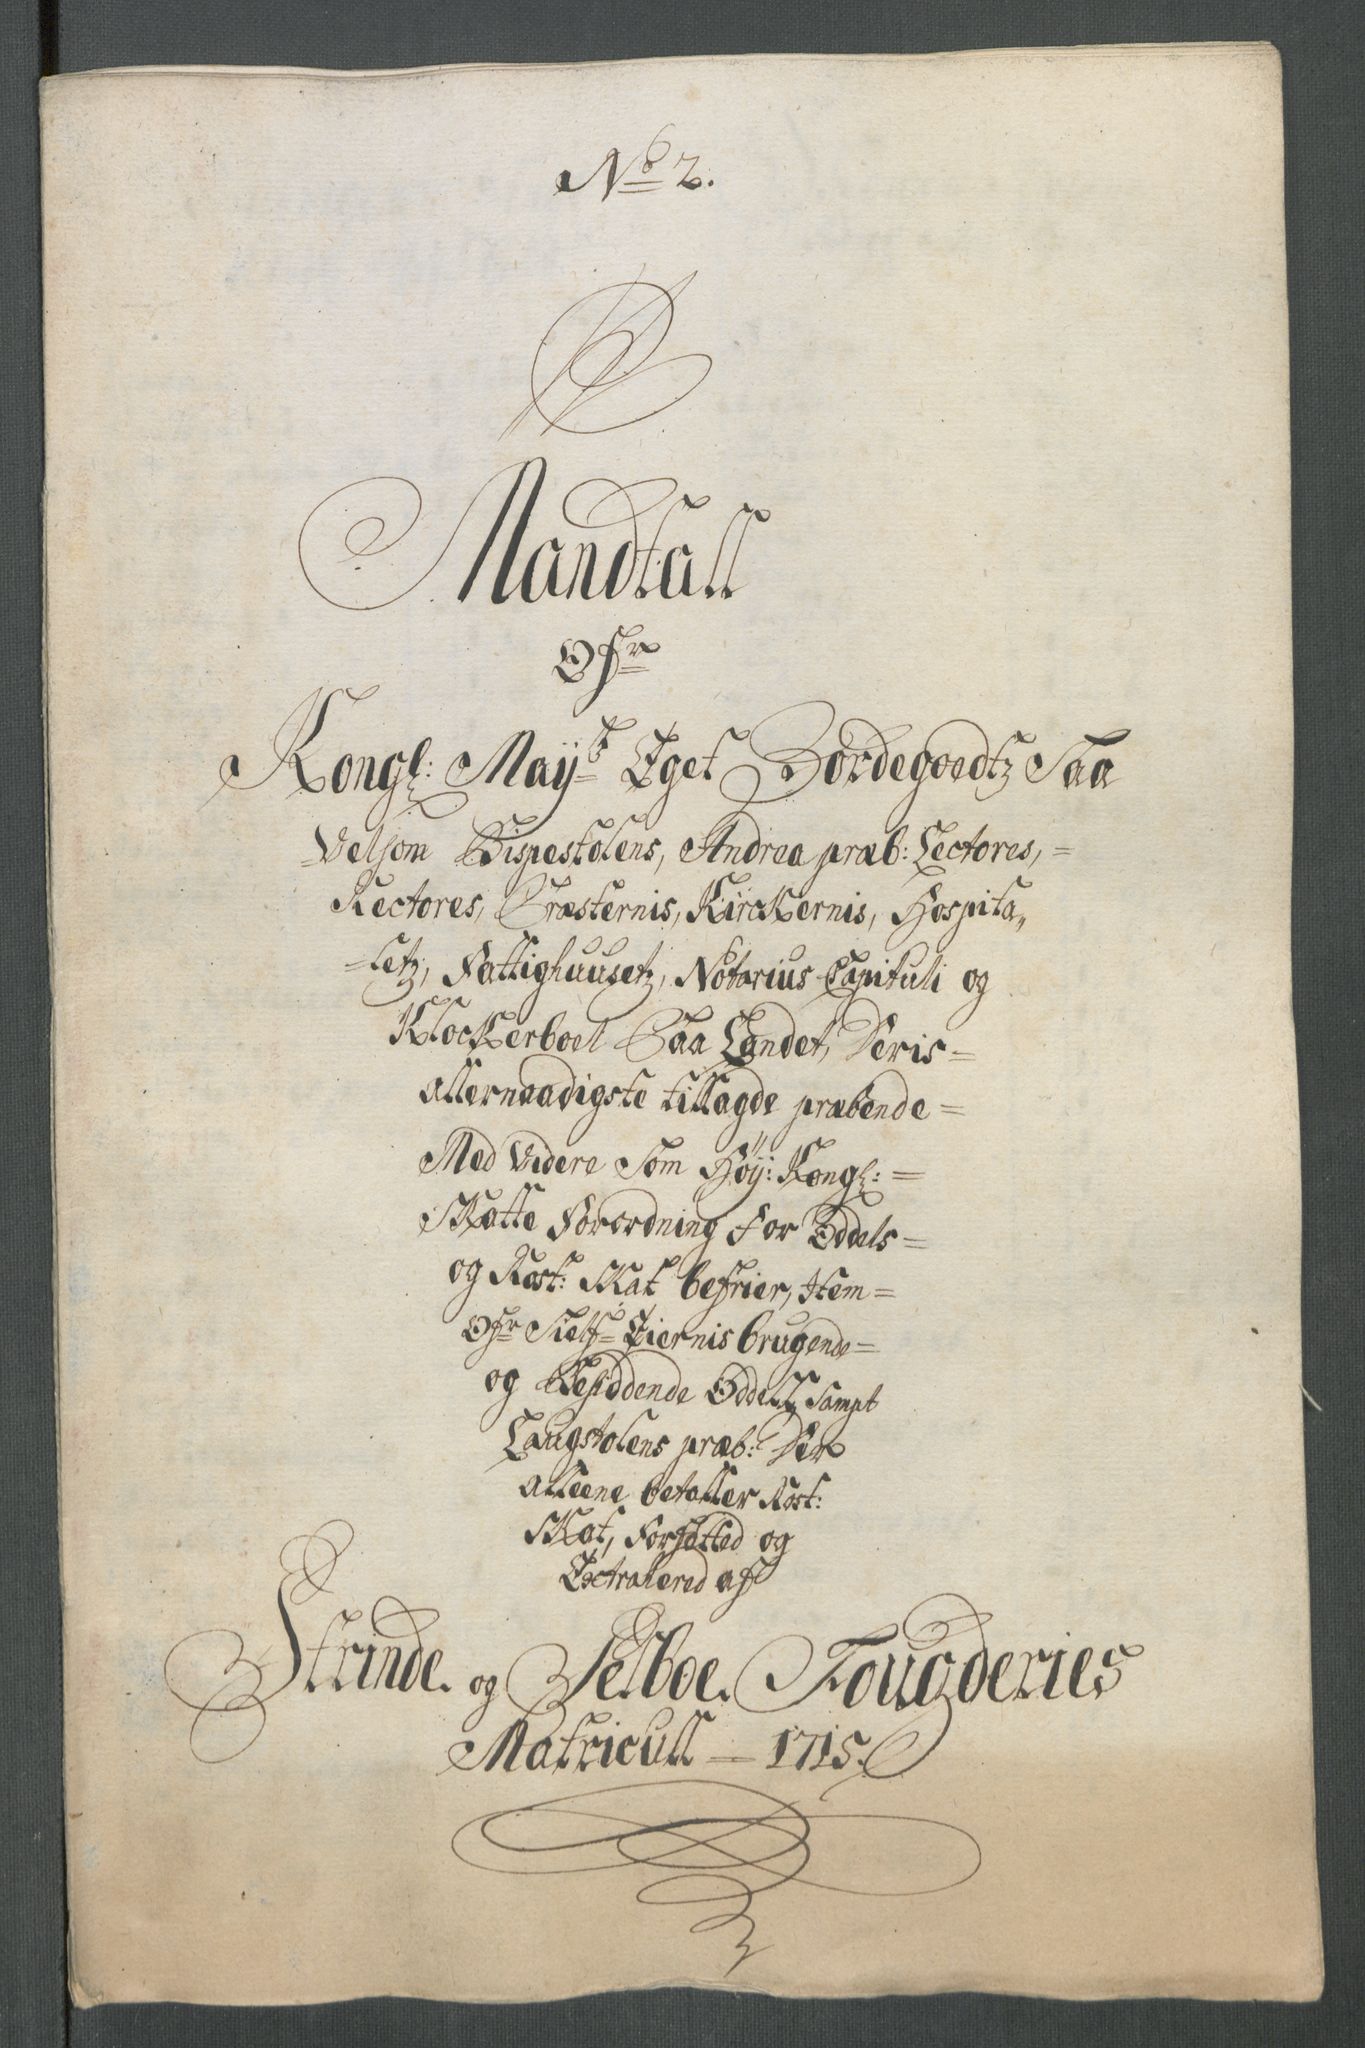 No 2.
Mandtall
Ofr
Kongl: Mayts Eget Bordegoedtz Saa
=Velsom Bispestolens, Andrea præb: Lectores,=
Rectores, Præsternis, Kirckernis, Hospita„
=letz, Fattighuusetz, Notarius Capituli og
Klockerboel Paa Landet, Deris=
allernaadigste tillagde præbende=
Med Videre Som Høÿ: Kongl:=
Skatte Forordning for Oddels=
og Rost: Skat befrier, Item=
Ofr Sielf= Eiernis brugende=
og Besiddende Oddell, Sampt
Laugstolens præb: Der
alleene betaller Rost:
Skat, Forfatted og
Extrahered af
Strinde. og Selboe. Fougderies
Matricull = 1715.